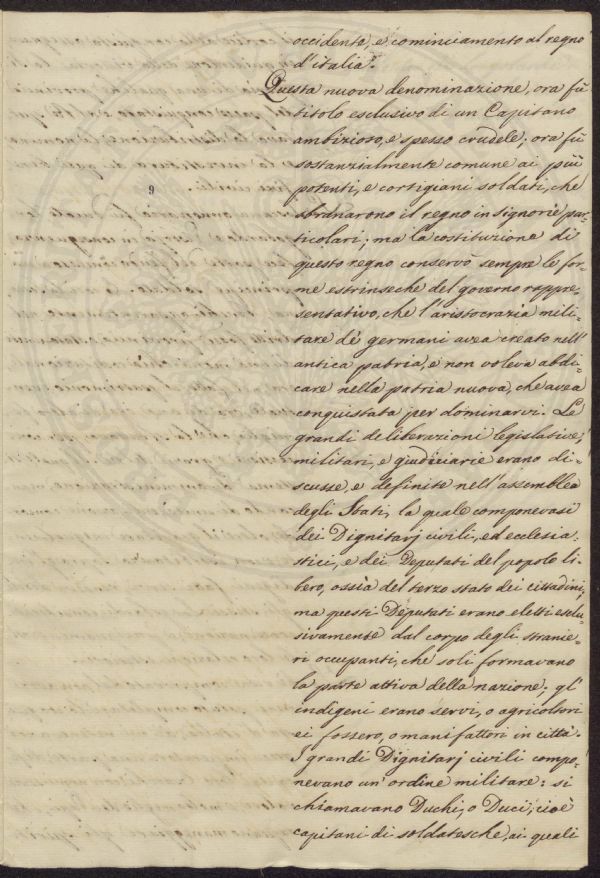 occidente, e cominciamento al regno
d'italia.
Questa nuova denominazione, ora fù
titolo esclusivo di un Capitano
ambizioso, e spesso crudele; ora fù
sostanzialmente comune ai più
potenti, e cortigiani soldati, che
sbranarono il regno in signorie par-
ticolari; ma la costituzione di
questo regno conservò sempre le for-
me estrinseche del governo rappre-
sentativo, che l'aristocrazia mili-
tare de' germani avea creato nell'
antica patria, e non voleva abdi-
care nella patria nuova, che avea
conquistata per dominarvi. Le
grandi deliberazioni legislative,
militari, e giudiciarie erano di-
scusse, e definite nell'assemblea
degli Stati, la quale componevasi
dei Dignitarj civili, ed ecclesia-
stici, e dei Deputati del popolo li-
bero, ossia del terzo stato dei cittadini;
ma questi Deputati erano eletti esclu-
sivamente dal corpo degli stranie-
ri occupanti, che soli formavano
la parte attiva della nazione; gl'
indigeni erano servi, o agricoltori
ei fossero, o manifattori in città.
I grandi Dignitarj civili compo-
nevano un'ordine militare: si
chiamavano Duchi, o Duci, cioè
capitani di soldatesche, ai quali
9